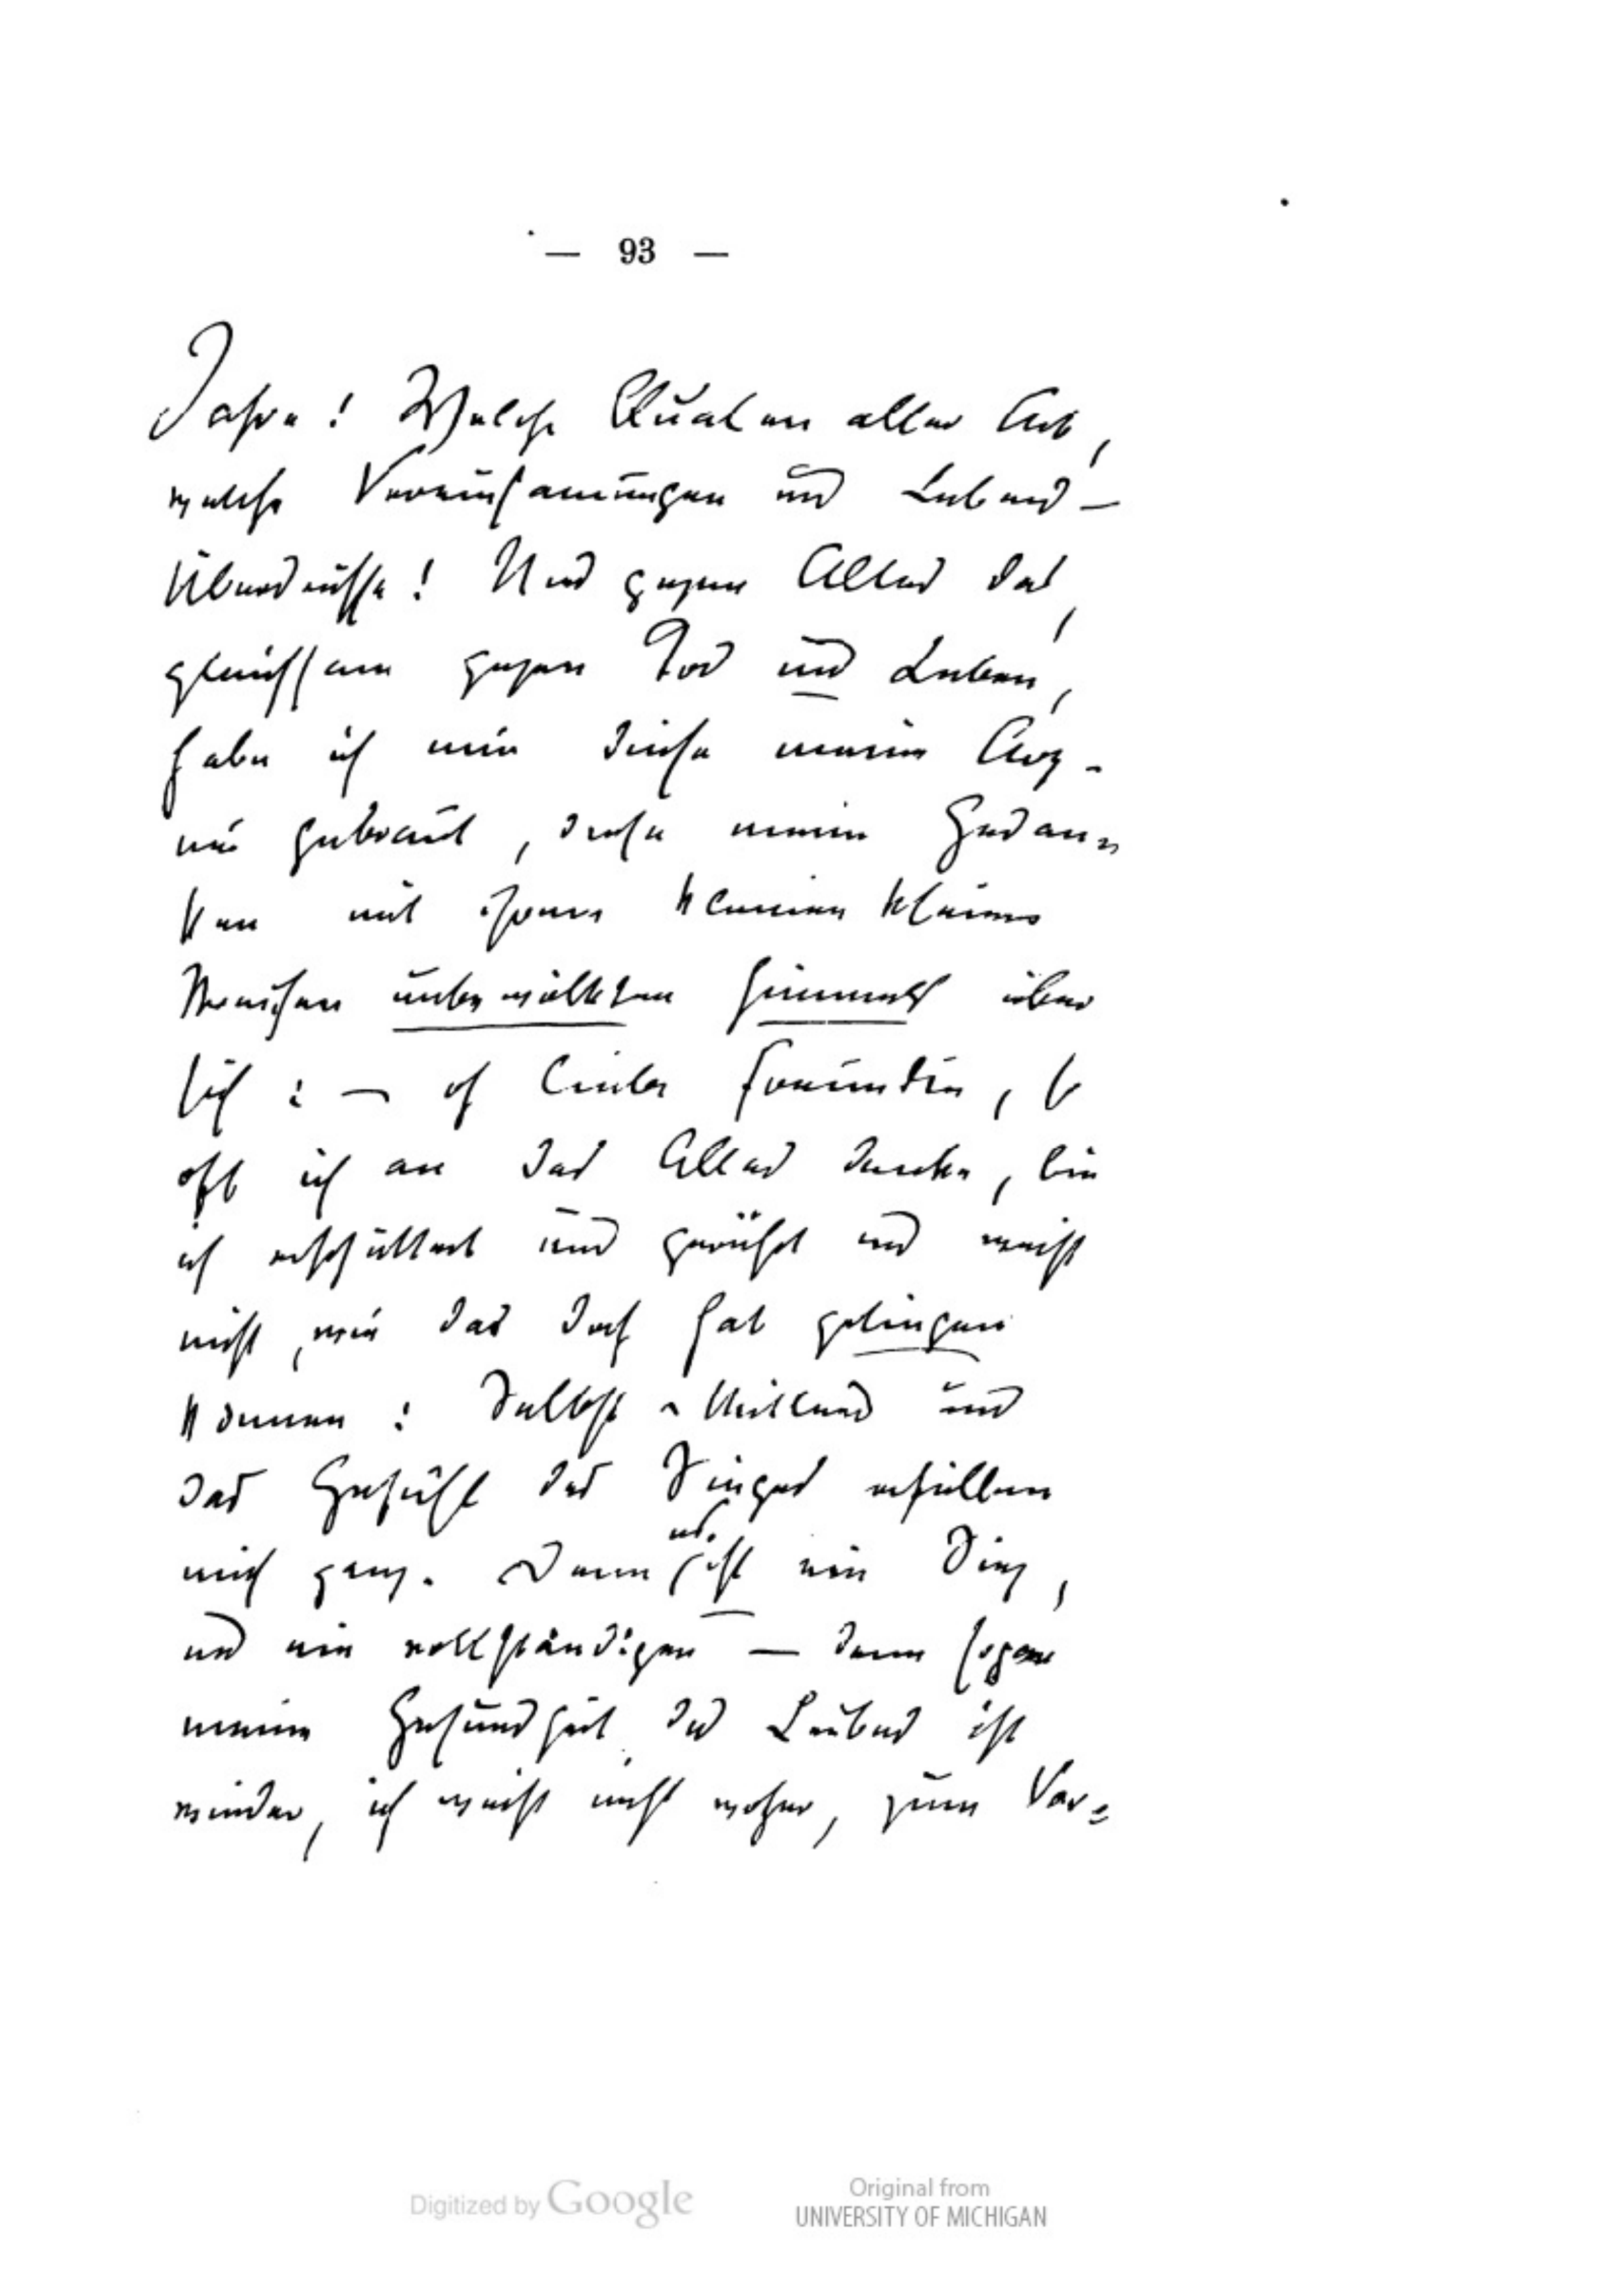 — 93 —
Jahre! Welche Qualen aller Art,
welche Vereinsamungen und Lebens-
Überdrüsse! Und gegen Alles das,
gleichsam gegen Tod und Leben,
habe ich mir diese meine Arz-
nei gebraut, diese meine Gedan-
ken mit ihrem kleinen kleinen
Streifen unbewölkten Himmels über
sich: — oh liebe Freundin, so
oft ich an das Alles denke, bin
ich erschüttert und gerührt und weiß
nicht, wie das doch hat gelingen
können: Selbst-Mitleid und
das Gefühl des Sieges erfüllen
mich ganz. Denn es ist ein Sieg,
und ein vollständiger — denn sogar
meine Gesundheit des Leibes ist
wieder, ich weiß nicht woher, zum Vor-
Digitized by Google
Original from
UNIVERSITY OF MICHIGAN